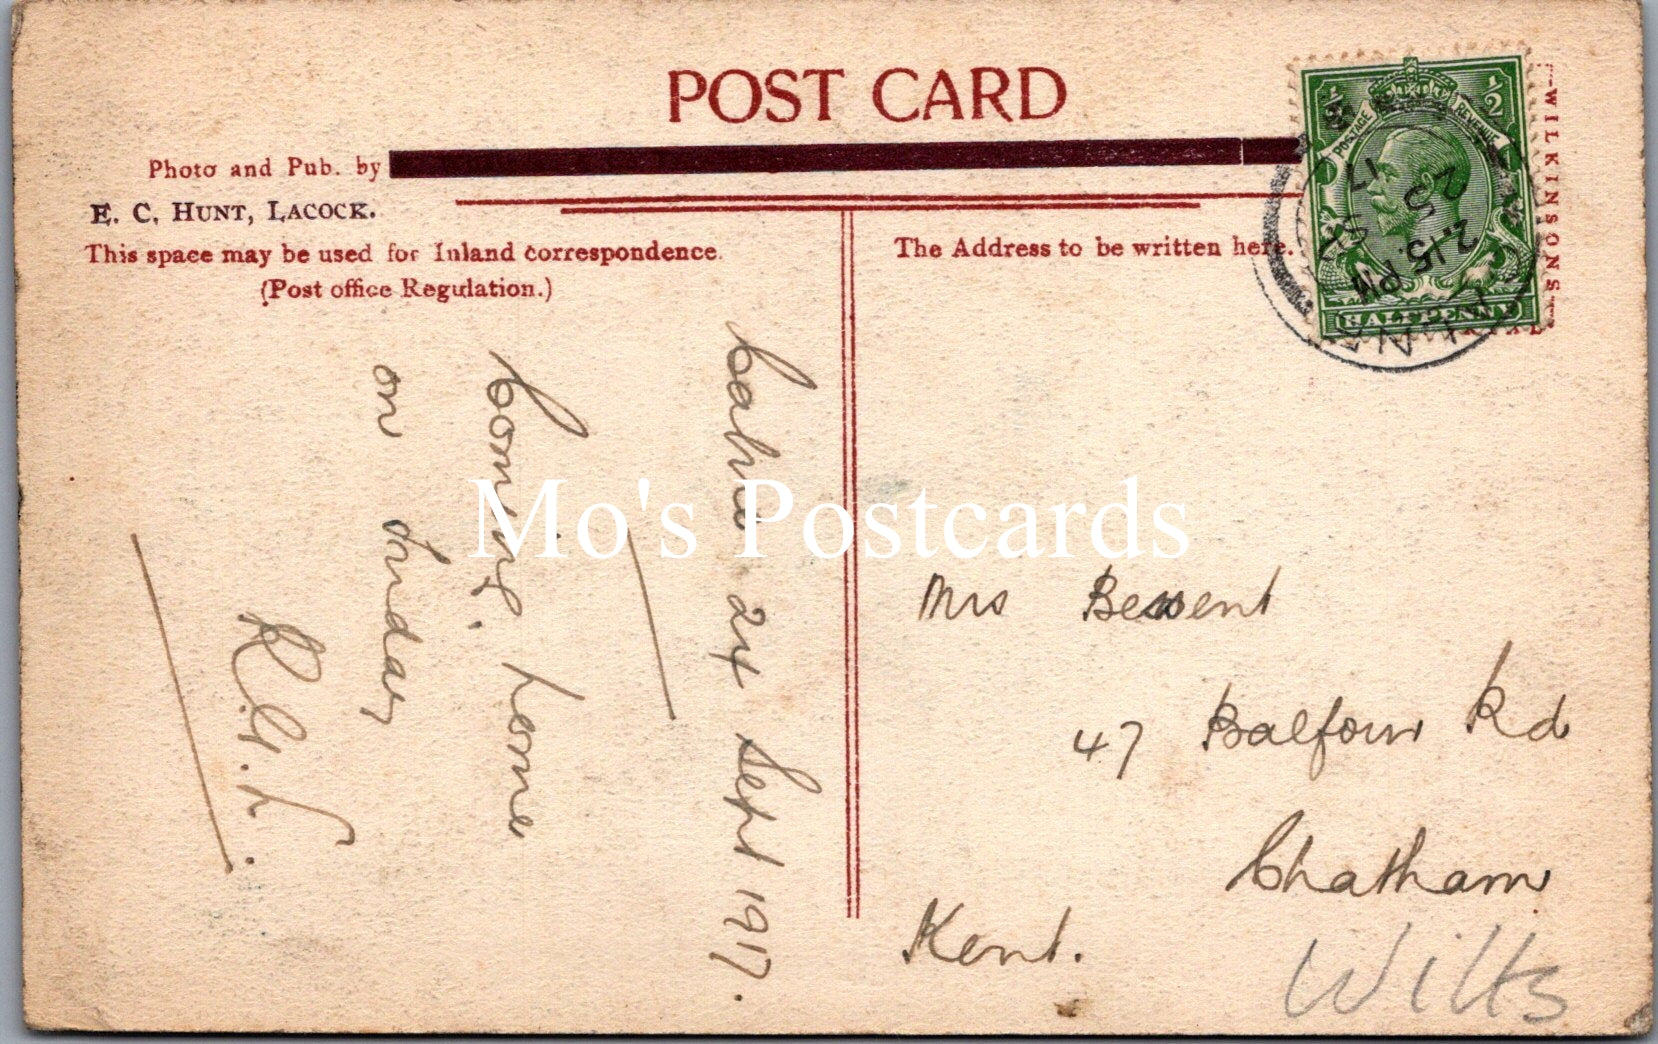 POST CARD
Photo and Pub. by
E. C. HUNT, LACOCK.
This space may be used for Inland correspondence.
(Post office Regulation.)
The Address to be written here.
WILKINSONS
POSTAGE REVENUE
½ ½
HALFPENNY
2.15 PM
25 SP
17
24 Sept 1917.
Coming home
on Friday
Mrs Bessent
47 Balfour Rd
Chatham
Kent.
Wilts
Mo's Postcards